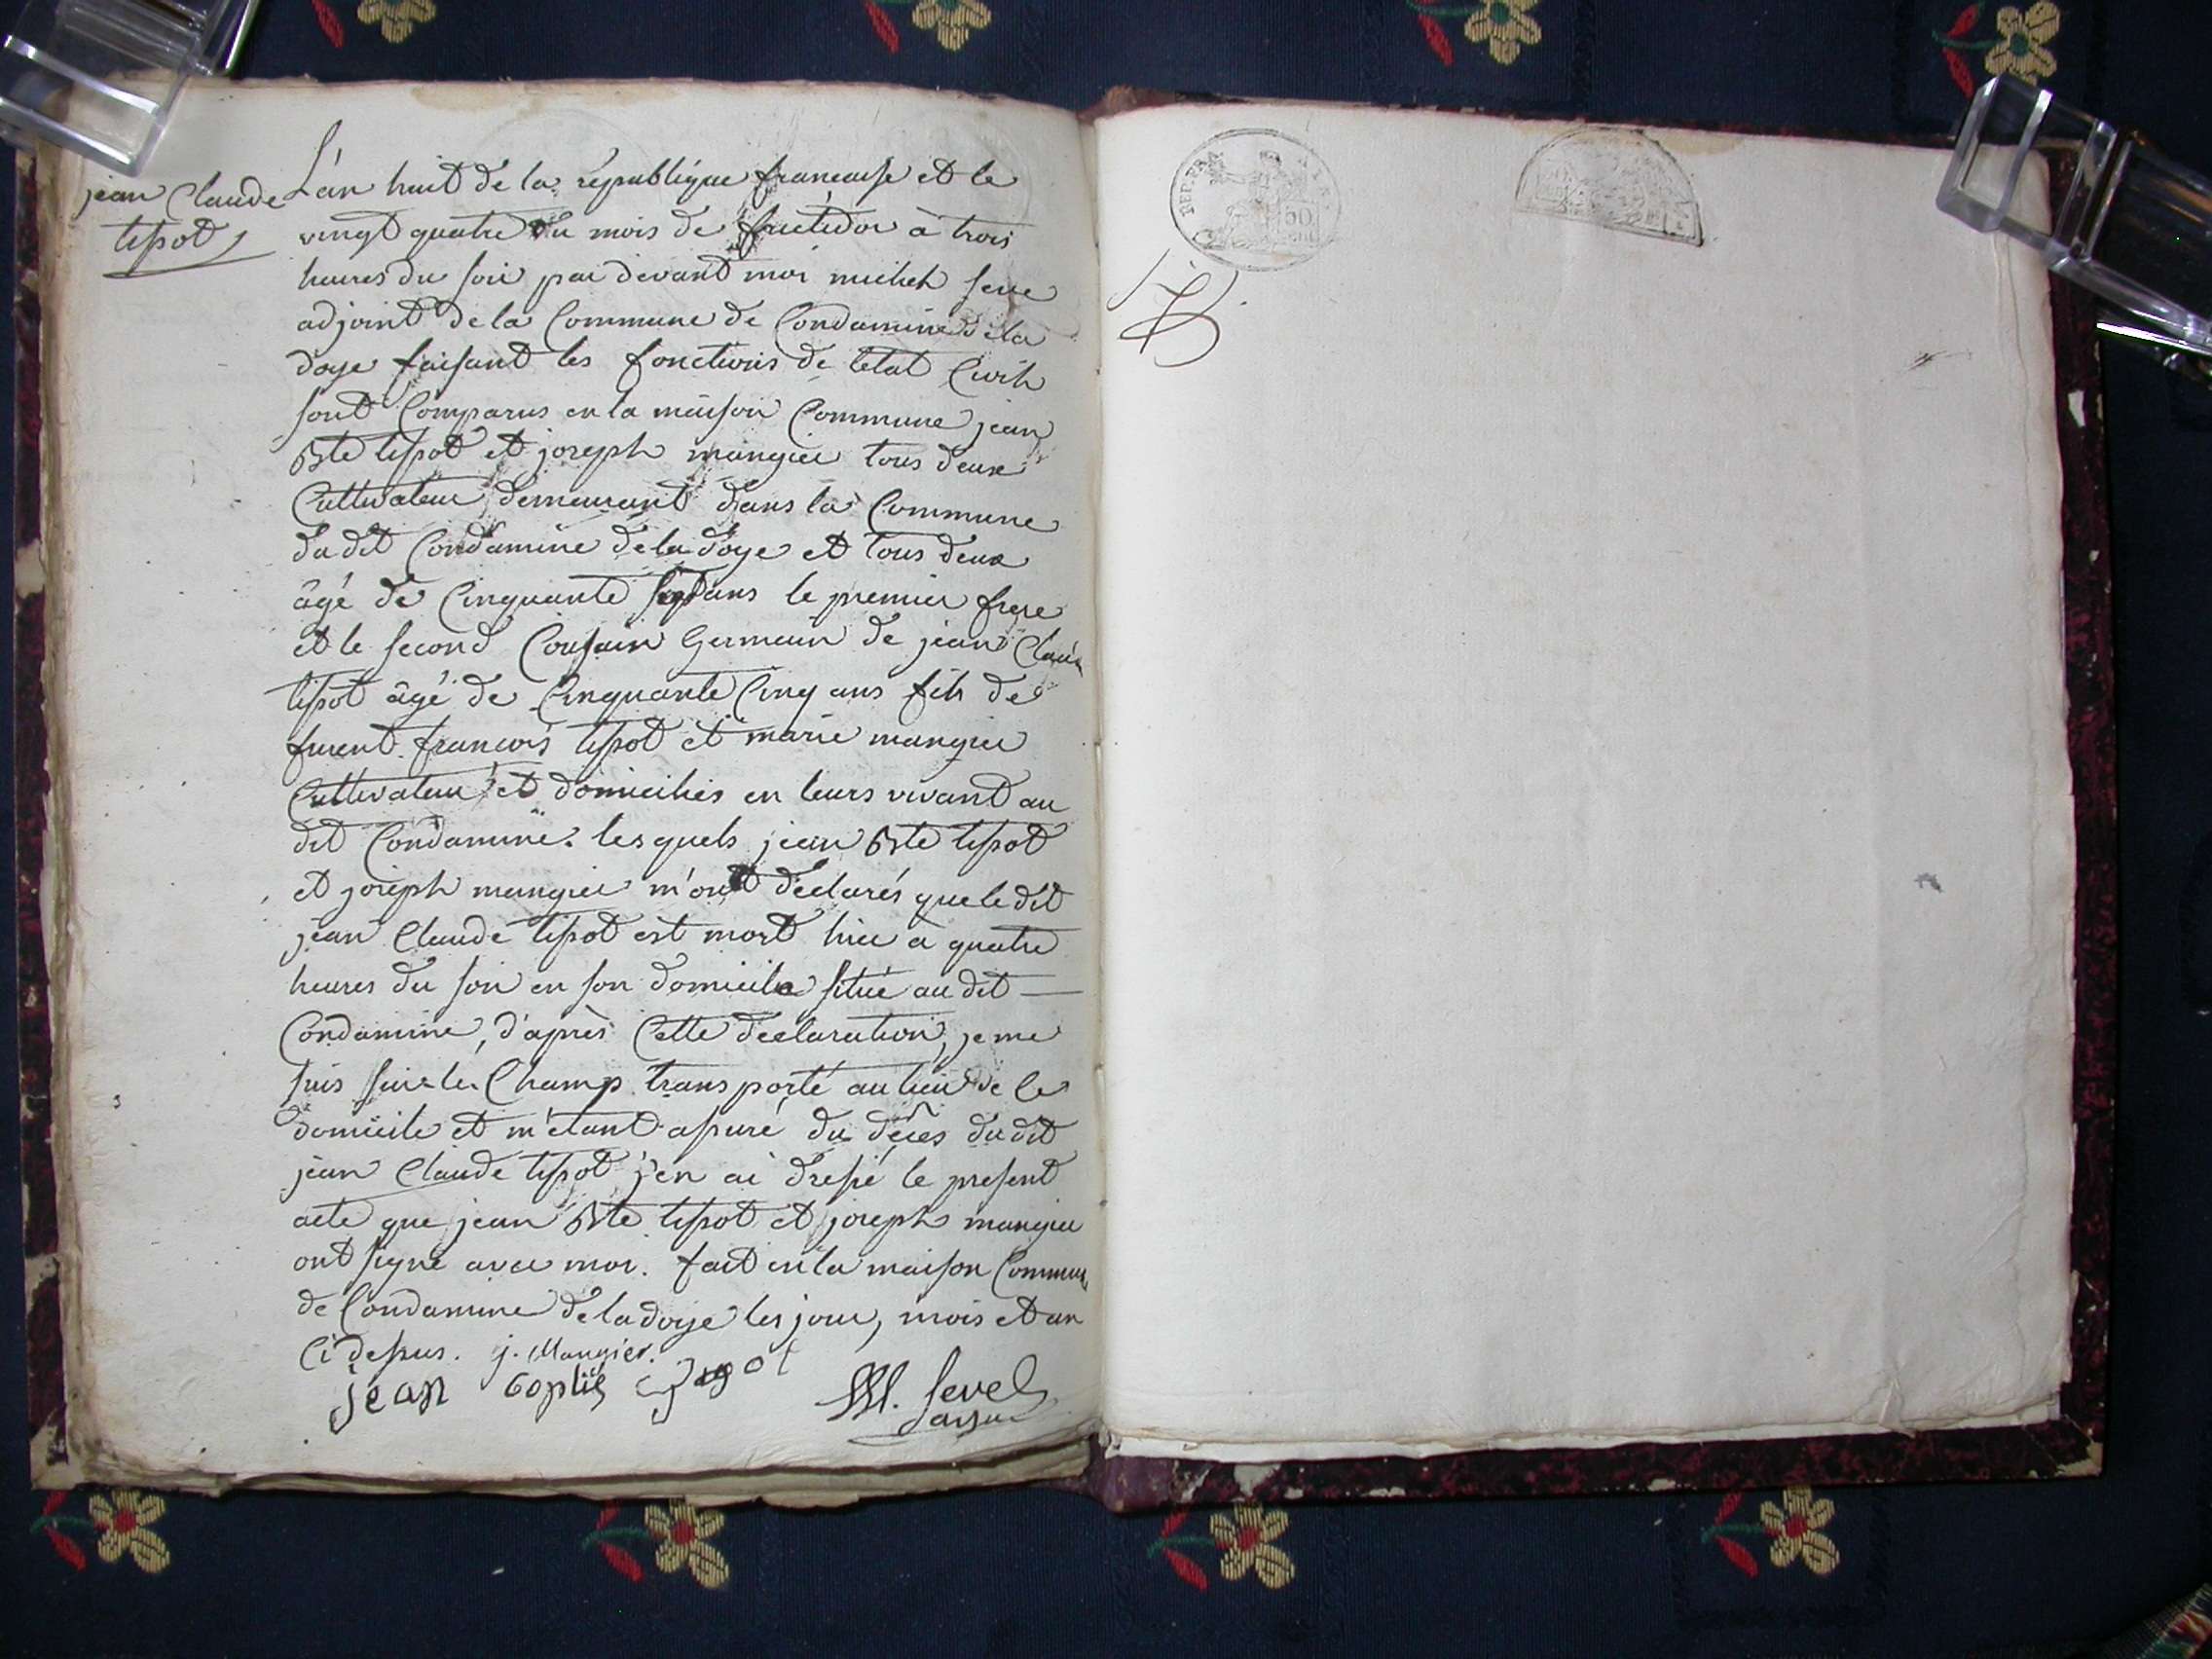 jean Claude
tissot
L'an huit de la republique francaise et le
vingt quatre du mois de fructidor à trois
heures du soir par devant moi michel seve
adjoint de la Commune de Condamine de la
doye faisant les fonctions de l'etat Civil
sont Comparus en la maison Commune jean
Bte tissot et joseph mangier tous deux
Cultivateur demeurant dans la Commune
du dit Condamine de la doye et tous deux
âgé de Cinquante sept ans le premier frere
et le second Cousain Germain de jean Claude
tissot âgé de Cinquante Cinq ans fils de
furent francois tissot et marie mangier
Cultivateur et domiciliés en leurs vivant au
dit Condamine. lesquels jean Bte tissot
et joseph mangier m'ont déclarés que le dit
jean Claude tissot est mort hier à quatre
heures du soir en son domicile situé au dit
Condamine, d'après Cette déclaration, je me
suis sur le Champ transporté au lieu de Ce
domicile et m'étant assuré du décés du dit
jean Claude tissot j'en ai dressé le present
acte que jean Bte tissot et joseph mangier
ont signé avec moi. fait en la maison Commune
de Condamine de la doye les jour, mois et an
Ci dessus. j. Mangier.
jean baptis
M. seve
REP. FRA
50